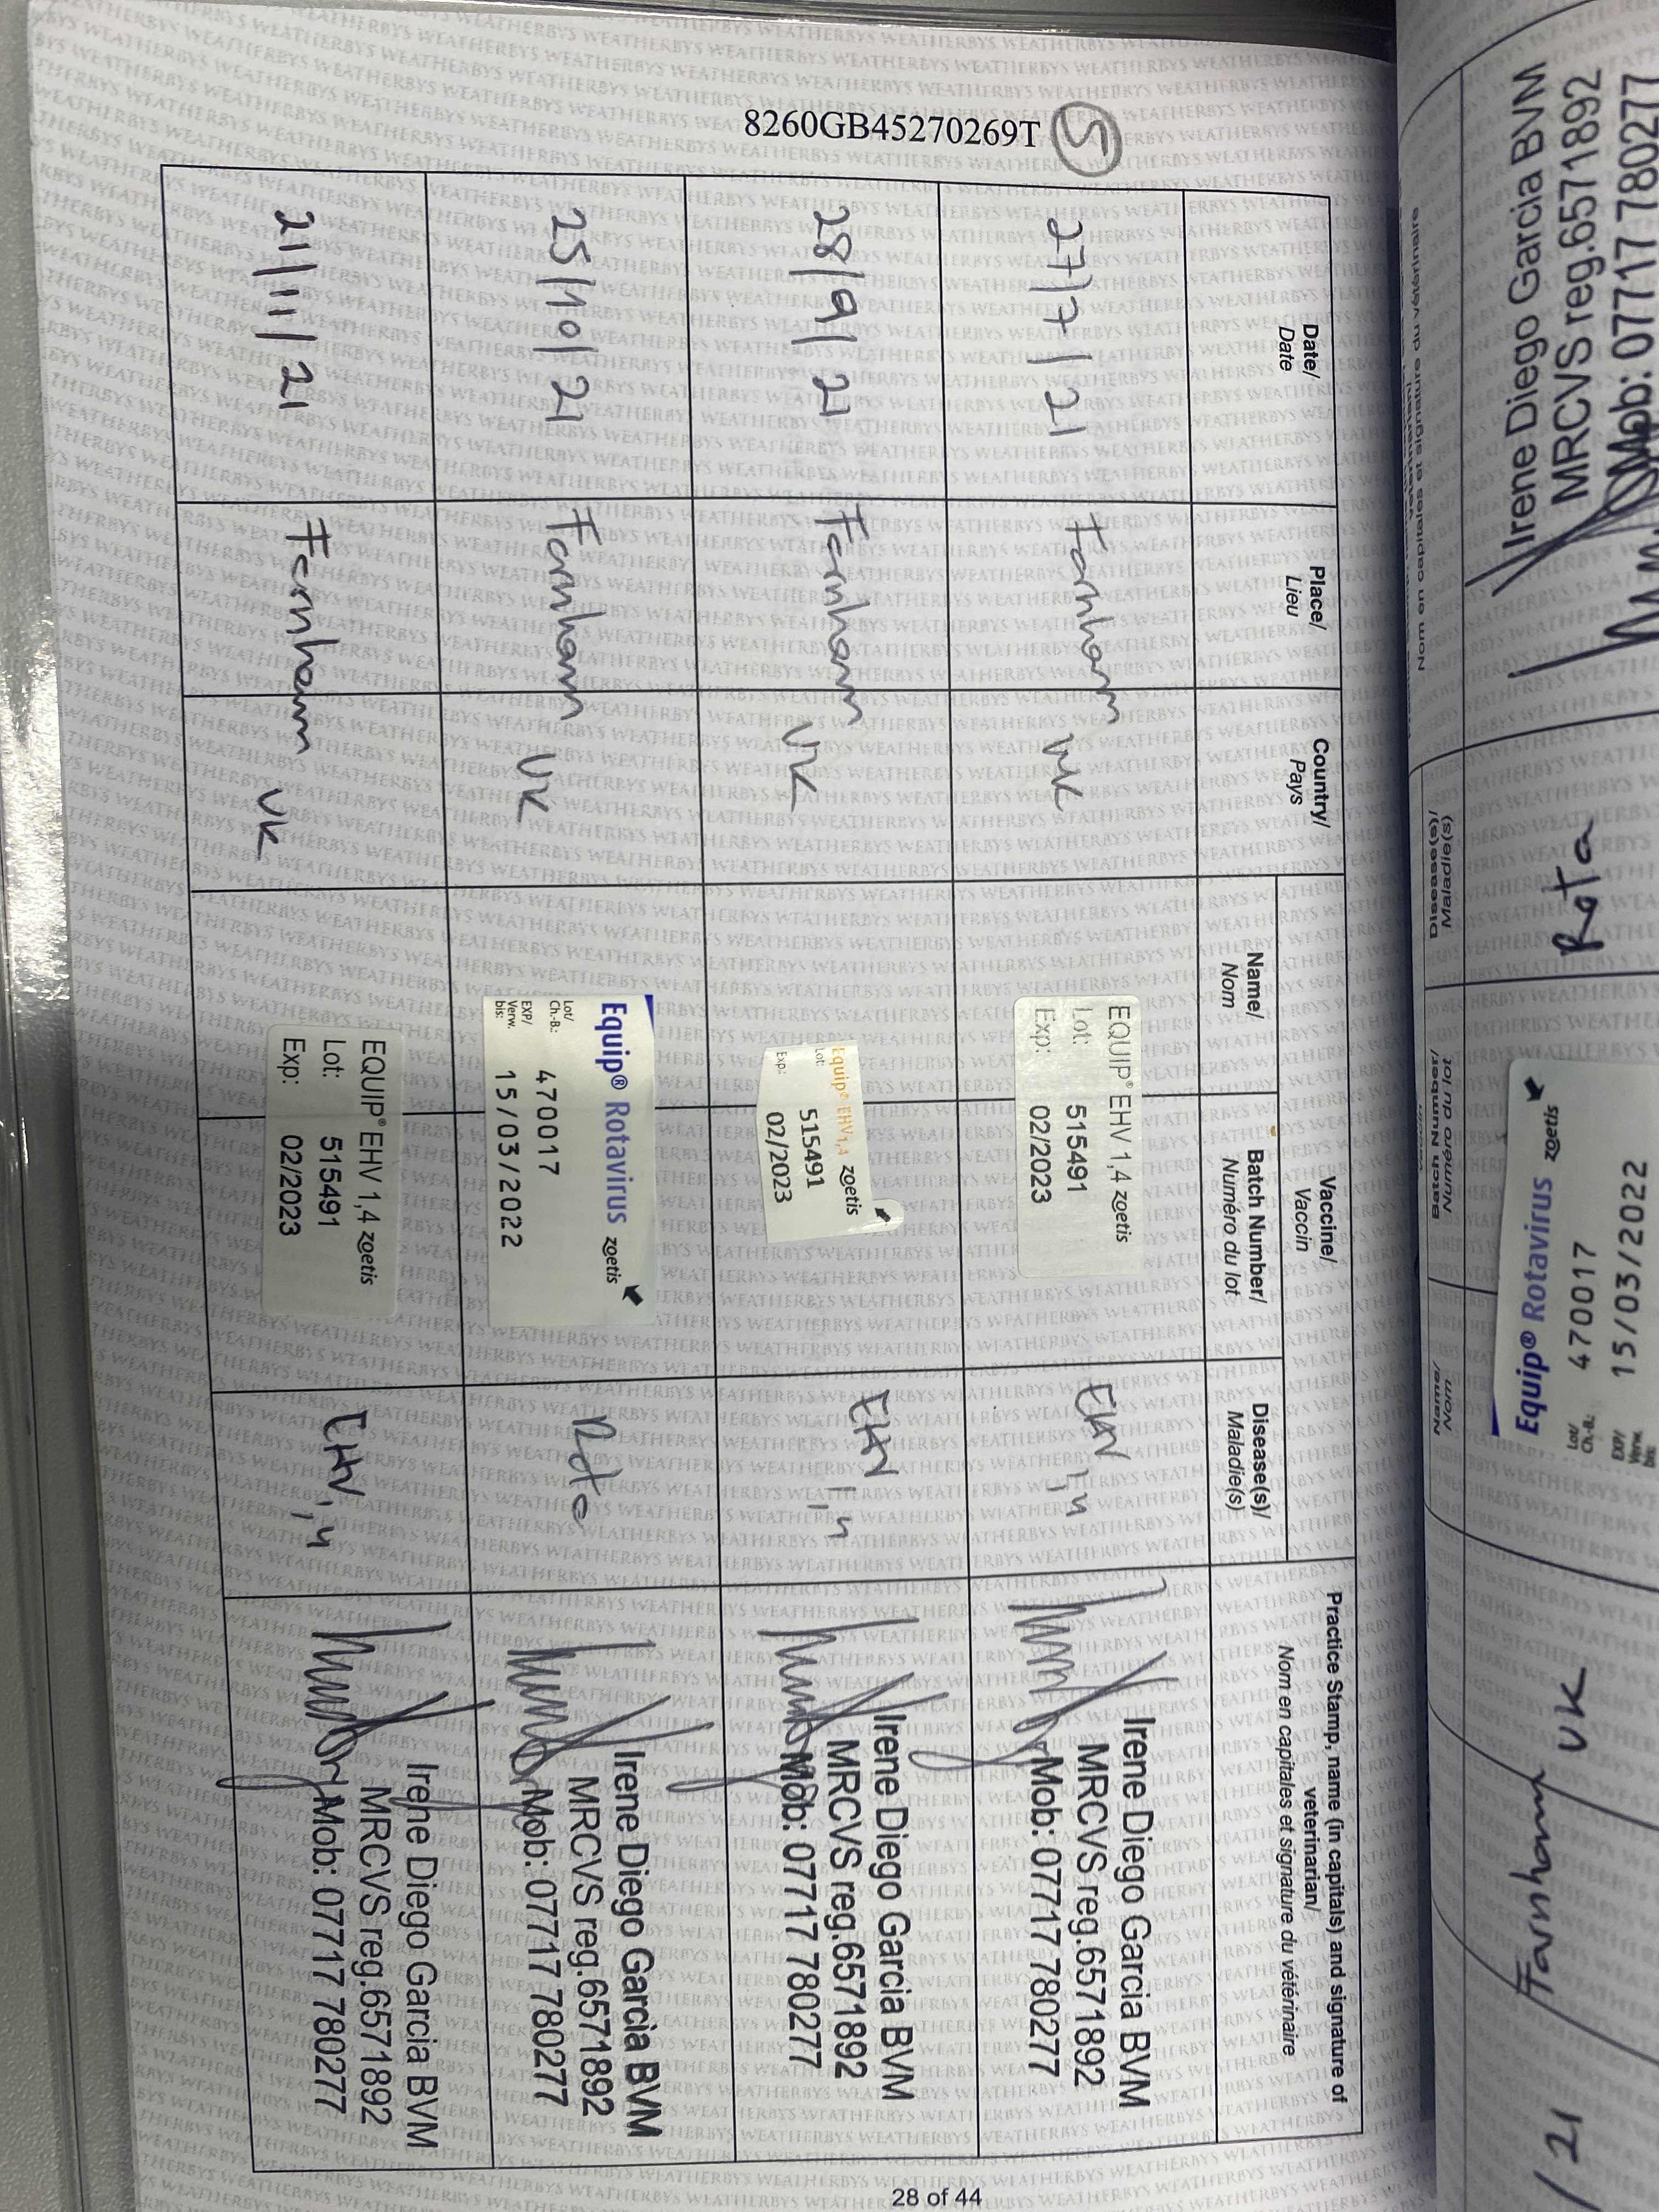 8260GB45270269T
5
Date/
Date
Place/
Lieu
Country/
Pays
Vaccine/
Vaccin
Name/
Nom
Batch Number/
Numéro du lot
Disease(s)/
Maladie(s)
Practice Stamp, name (in capitals) and signature of
veterinarian/
Nom en capitales et signature du vétérinaire
27/7/21
Farnham
UK
EQUIP® EHV 1,4 zoetis
Lot: 515491
Exp: 02/2023
EHV 1,4
Irene Diego Garcia BVM
MRCVS reg.6571892
Mob: 07717 780277
28/9/21
Farnham
UK
Equip® EHV1,4 zoetis
Lot: 515491
Exp.: 02/2023
EHV 1,4
Irene Diego Garcia BVM
MRCVS reg.6571892
Mob: 07717 780277
25/10/21
Farnham
UK
Equip® Rotavirus zoetis
Lot/
Ch.-B.: 470017
EXP/
Verw.
bis: 15/03/2022
Rota
Irene Diego Garcia BVM
MRCVS reg.6571892
Mob: 07717 780277
21/11/21
Farnham
UK
EQUIP® EHV 1,4 zoetis
Lot: 515491
Exp: 02/2023
EHV 1,4
Irene Diego Garcia BVM
MRCVS reg.6571892
Mob: 07717 780277
28 of 44
Nom en capitales et signature du vétérinaire
Disease(s)/
Maladie(s)
Batch Number/
Numéro du lot
Name/
Nom
/21
Farnham
UK
Equip® Rotavirus zoetis
Lot/
Ch.-B.: 470017
EXP/
Verw.
bis: 15/03/2022
Rota
Irene Diego Garcia BVM
MRCVS reg.6571892
Mob: 07717 780277